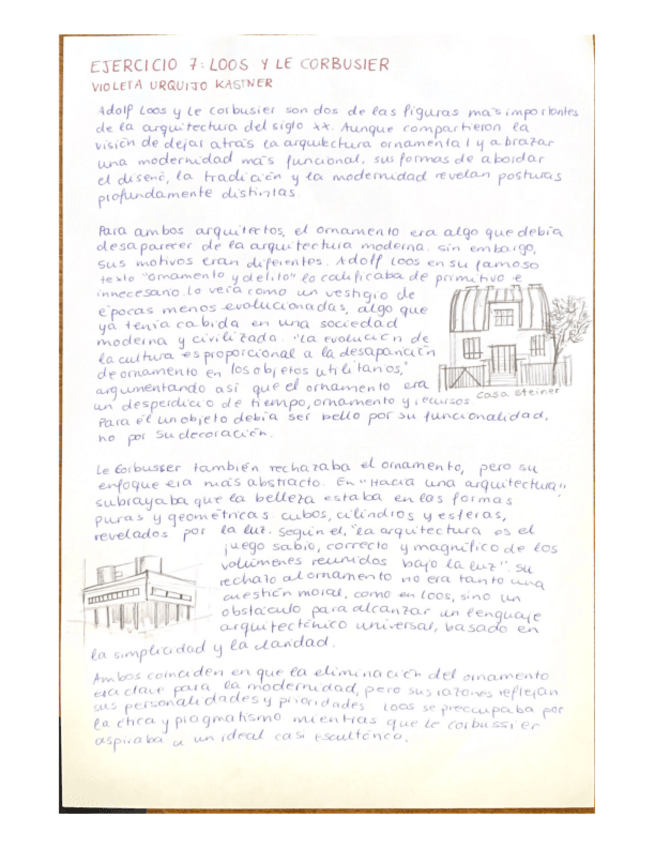 EJERCICIO 7: LOOS Y LE CORBUSIER
VIOLETA URQUIJO KASTNER
Adolf Loos y Le Corbusier son dos de las figuras mas importantes
de la arquitectura del siglo XX. Aunque compartieron la
visión de dejar atrás la arquitectura ornamental y abrazar
una modernidad más funcional, sus formas de abordar
el diseño, la tradición y la modernidad revelan posturas
profundamente distintas.
Para ambos arquitectos, el ornamento era algo que debía
desaparecer de la arquitectura moderna. Sin embargo,
sus motivos eran diferentes. Adolf Loos en su famoso
texto "Ornamento y delito" lo calificaba de primitivo e
innecesario. Lo veía como un vestigio de
épocas menos evolucionadas, algo que
ya tenía cabida en una sociedad
moderna y civilizada. "La evolución de
la cultura es proporcional a la desaparición
de ornamento en los objetos utilitarios,"
argumentando así que el ornamento era
un desperdicio de tiempo, ornamento y recursos.
casa steiner
Para él un objeto debía ser bello por su funcionalidad,
no por su decoración.
Le Corbusser también rechazaba el ornamento, pero su
enfoque era más abstracto. En "Hacia una arquitectura"
subrayaba que la belleza estaba en las formas
puras y geométricas: cubos, cilindros y esferas,
revelados por la luz. Según el, "la arquitectura es el
juego sabio, correcto y magnífico de los
volúmenes reunidos bajo la luz". Su
rechazo al ornamento no era tanto una
cuestión moral, como en Loos, sino un
obstáculo para alcanzar un lenguaje
arquitectónico universal, basado en
la simplicidad y la claridad.
Ambos coinciden en que la eliminación del ornamento
era clave para la modernidad, pero sus razones reflejan
sus personalidades y prioridades. Loos se preocupaba por
la ética y pragmatismo mientras que Le Corbussier
aspiraba a un ideal casi escultórico.